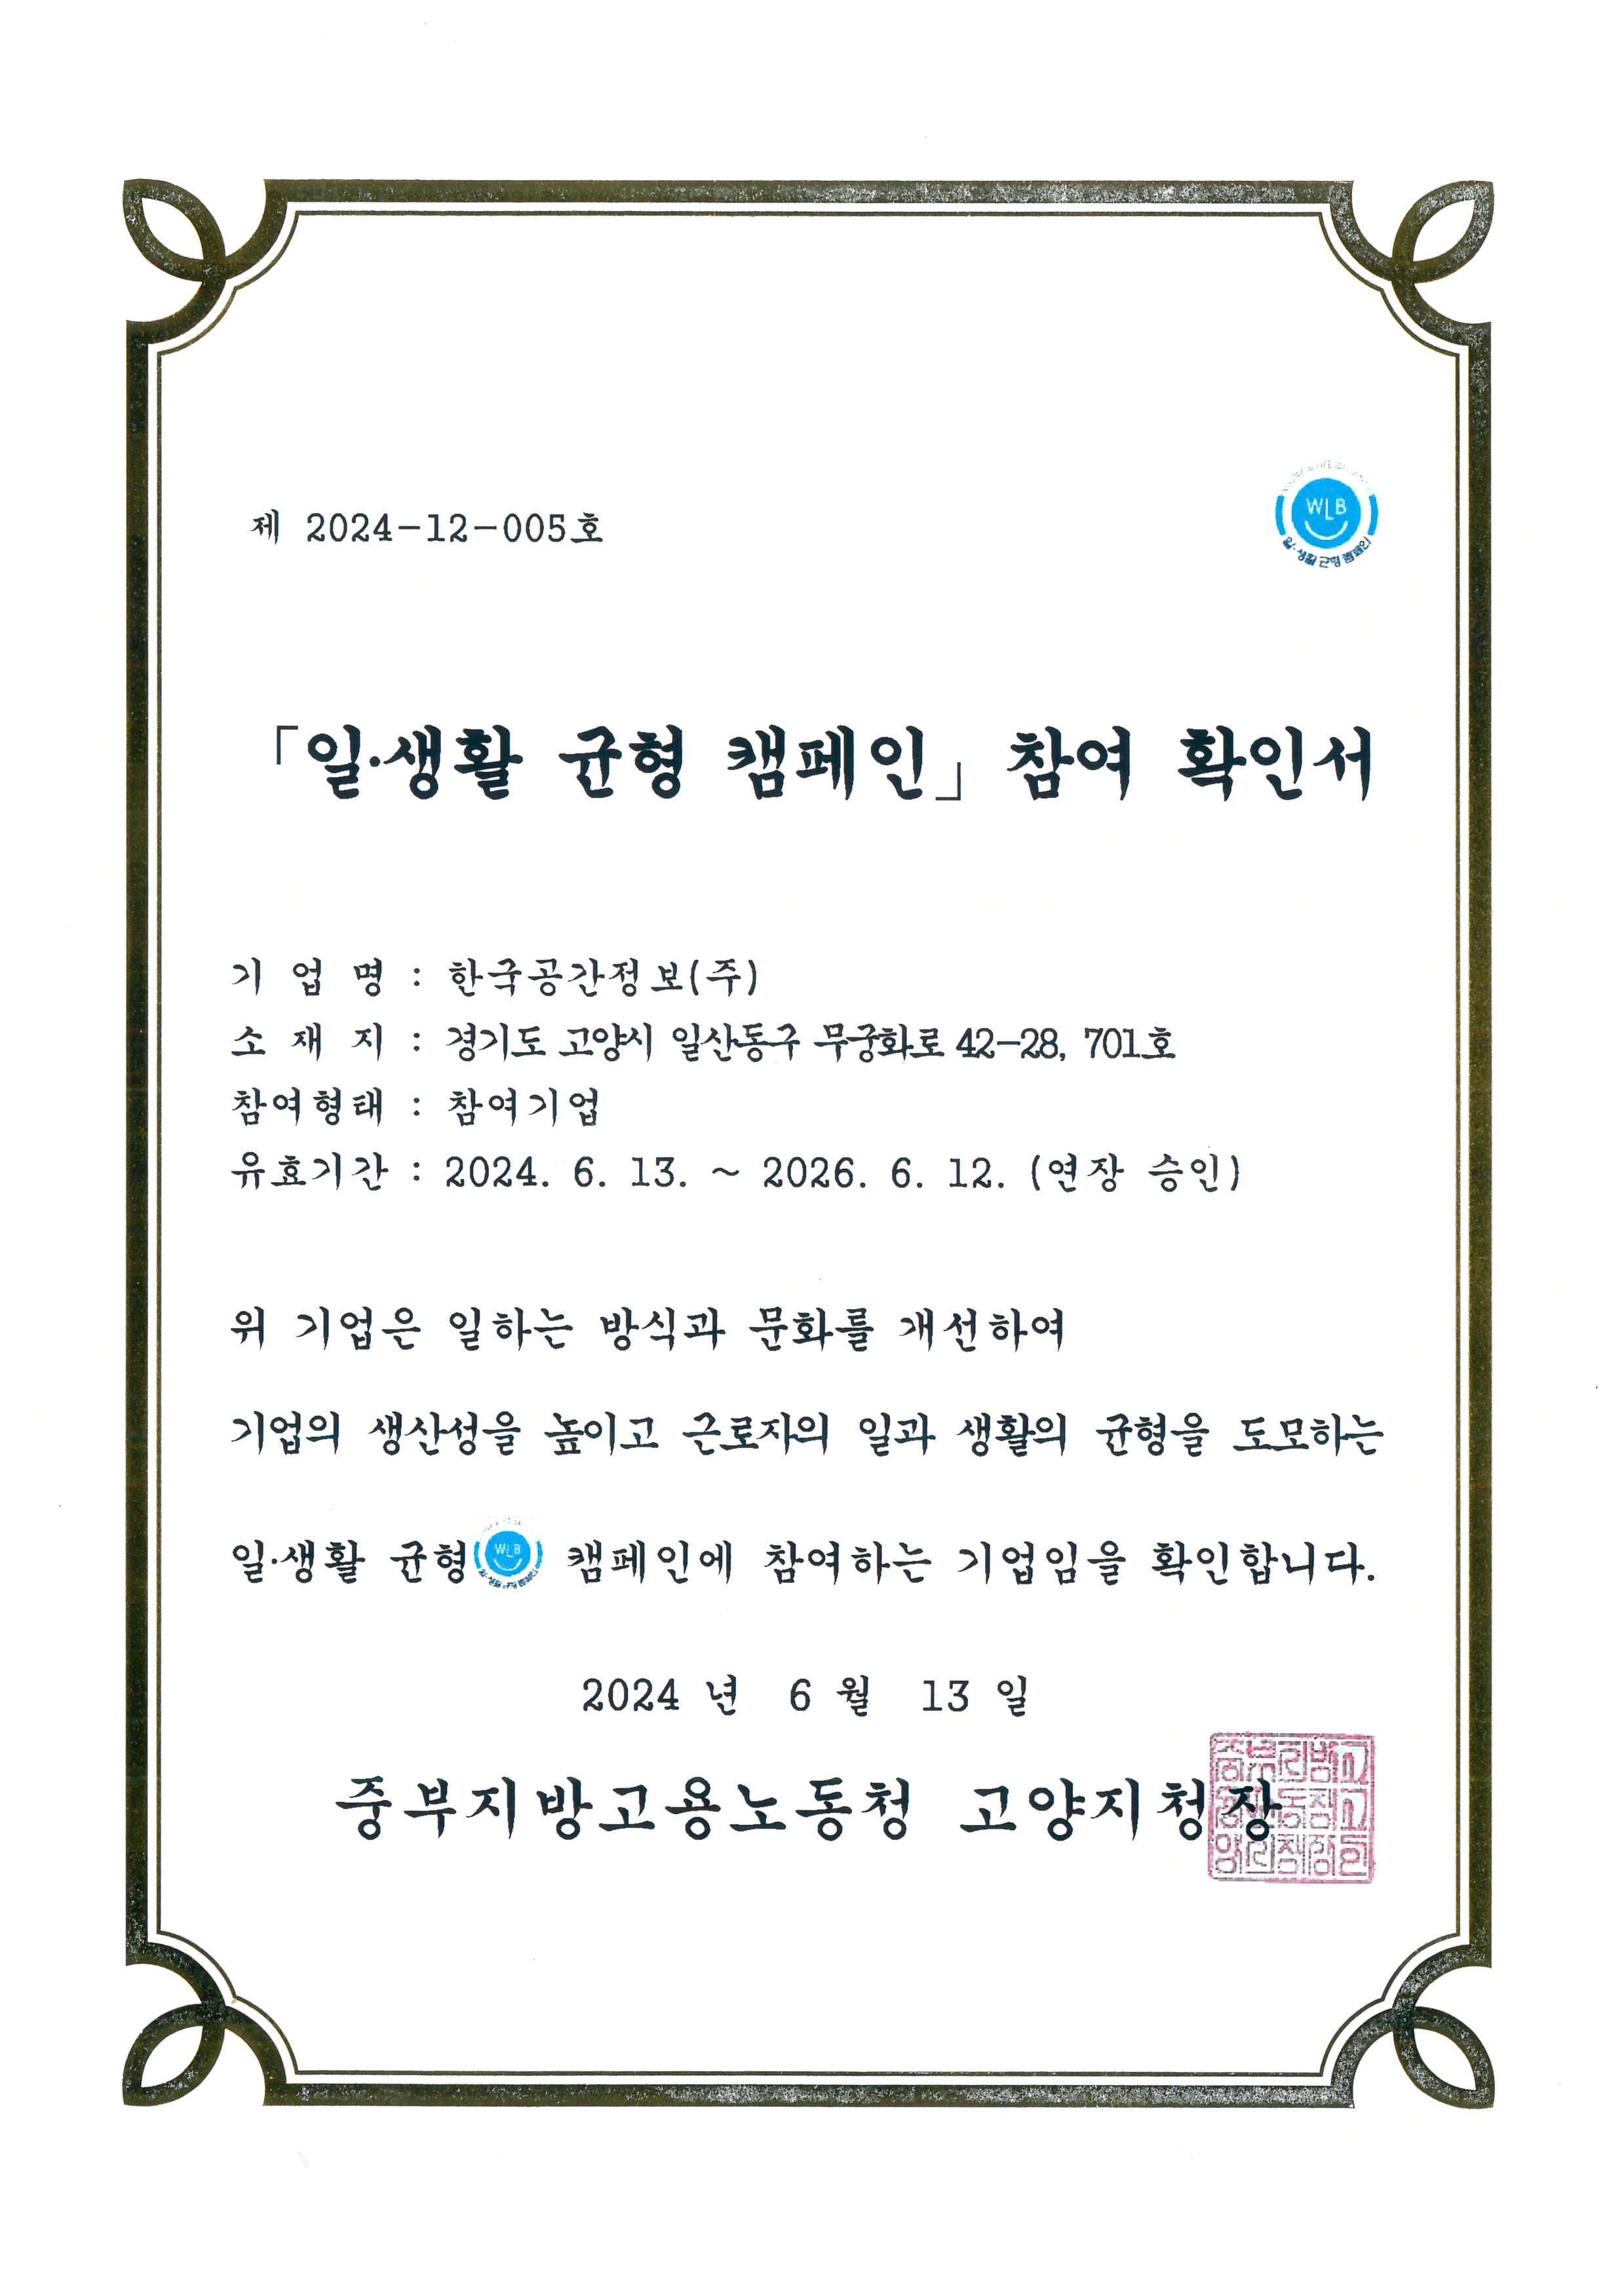 제 2024-12-005호
WLB
일·생활 균형 캠페인
「일·생활 균형 캠페인」 참여 확인서
기 업 명 : 한국공간정보(주)
소 재 지 : 경기도 고양시 일산동구 무궁화로 42-28, 701호
참여형태 : 참여기업
유효기간 : 2024. 6. 13. ~ 2026. 6. 12. (연장 승인)
위 기업은 일하는 방식과 문화를 개선하여
기업의 생산성을 높이고 근로자의 일과 생활의 균형을 도모하는
일·생활 균형 WLB 캠페인에 참여하는 기업임을 확인합니다.
2024 년 6 월 13 일
중부지방고용노동청 고양지청장